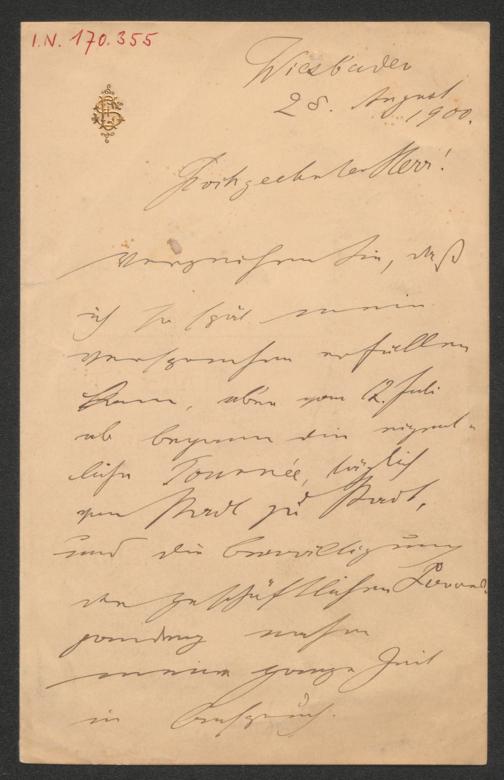 I.N. 170.355
Wiesbaden
28. August
1900.
Hochgeehrter Herr!
Verzeihen Sie, daß
ich so spät mein
Versprechen erfüllen
kann, aber vom 12. Juli
ab begann die eigent-
liche Tournée, täglich
von Stadt zu Stadt,
und die Bewältigung
der geschäftlichen Corres-
pondenz nahm
meine ganze Zeit
in Anspruch.